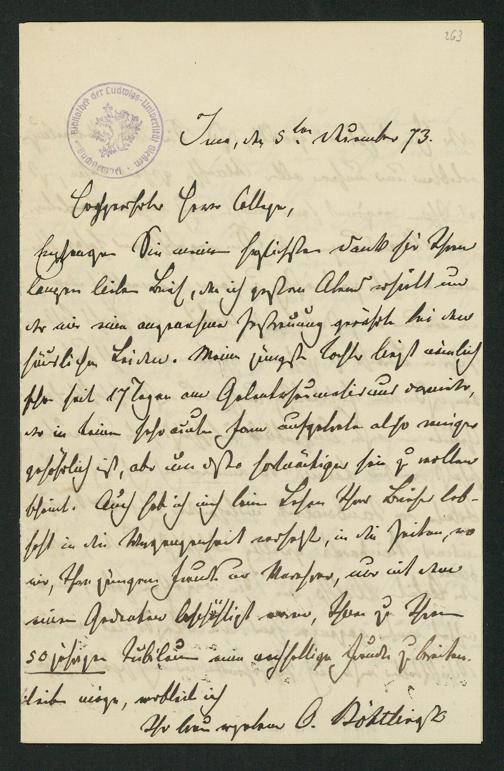 263
Bibliothek der Ludwigs-Universität Giessen
Jena, den 5ten December 73.
Hochverehrter Herr College,
Empfangen Sie meinen herzlichsten Dank für Ihren
langen lieben Brief, den ich gestern Abend erhielt und
der mir eine angenehme Zerstreuung gewährte bei den
häuslichen Leiden. Meine jüngste Tochter liegt nämlich
schon seit 17 Tagen am Gelenkrheumatismus danieder,
der in keiner sehr acuten Form aufgetreten also weniger
gefährlich ist, aber um desto hartnäckiger sein zu wollen
scheint. Auch hab ich mich beim Lesen Ihres Briefes leb-
haft in die Vergangenheit versetzt, in die Zeiten, wo
wir, Ihre jüngeren Freunde und Verehrer, nur mit dem
einen Gedanken beschäftigt waren, Ihnen zu Ihrem
50 jährigen Jubiläum eine nachhaltige Freude zu bereiten.
bleiben möge, verbleib ich
Ihr treu ergebener O. Böhtlingk